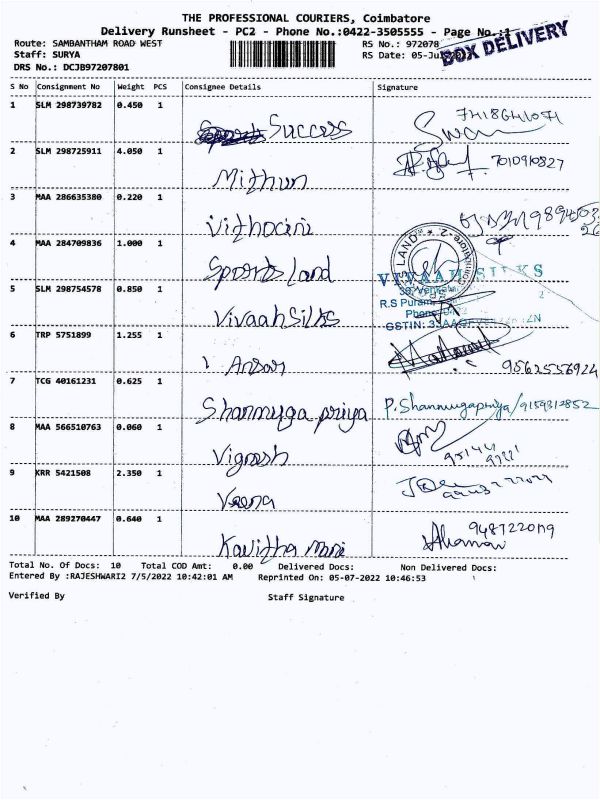 THE PROFESSIONAL COURIERS, Coimbatore
Delivery Runsheet - PC2 - Phone No.:0422-3505555 - Page No.:1
Route: SAMBANTHAM ROAD WEST RS No.: 972078
BOX DELIVERY
Staff: SURYA RS Date: 05-Jul
DRS No.: DCJB97207801
S No Consignment No Weight PCS Consignee Details Signature
1 SLM 298739782 0.450 1 Success
2 SLM 298725911 4.050 1 Mithun 7010910827
3 MAA 286635380 0.220 1
4 MAA 284709836 1.000 1 Sports Land
5 SLM 298754578 0.850 1 Vivaah Silks
VIVAAH SILKS
R.S Puram
Phone
GSTIN: 33AA
6 TRP 5751899 1.255 1 Ansar 9562556924
7 TCG 40161231 0.625 1 Shanmuga priya P.Shanmugapriya/9159312852
8 MAA 566510763 0.060 1 Vignesh
9 KRR 5421508 2.350 1 Veena
10 MAA 289270447 0.640 1 Kavitha mani
Total No. Of Docs: 10 Total COD Amt: 0.00 Delivered Docs: Non Delivered Docs:
Entered By :RAJESHWARI2 7/5/2022 10:42:01 AM Reprinted On: 05-07-2022 10:46:53
Verified By Staff Signature